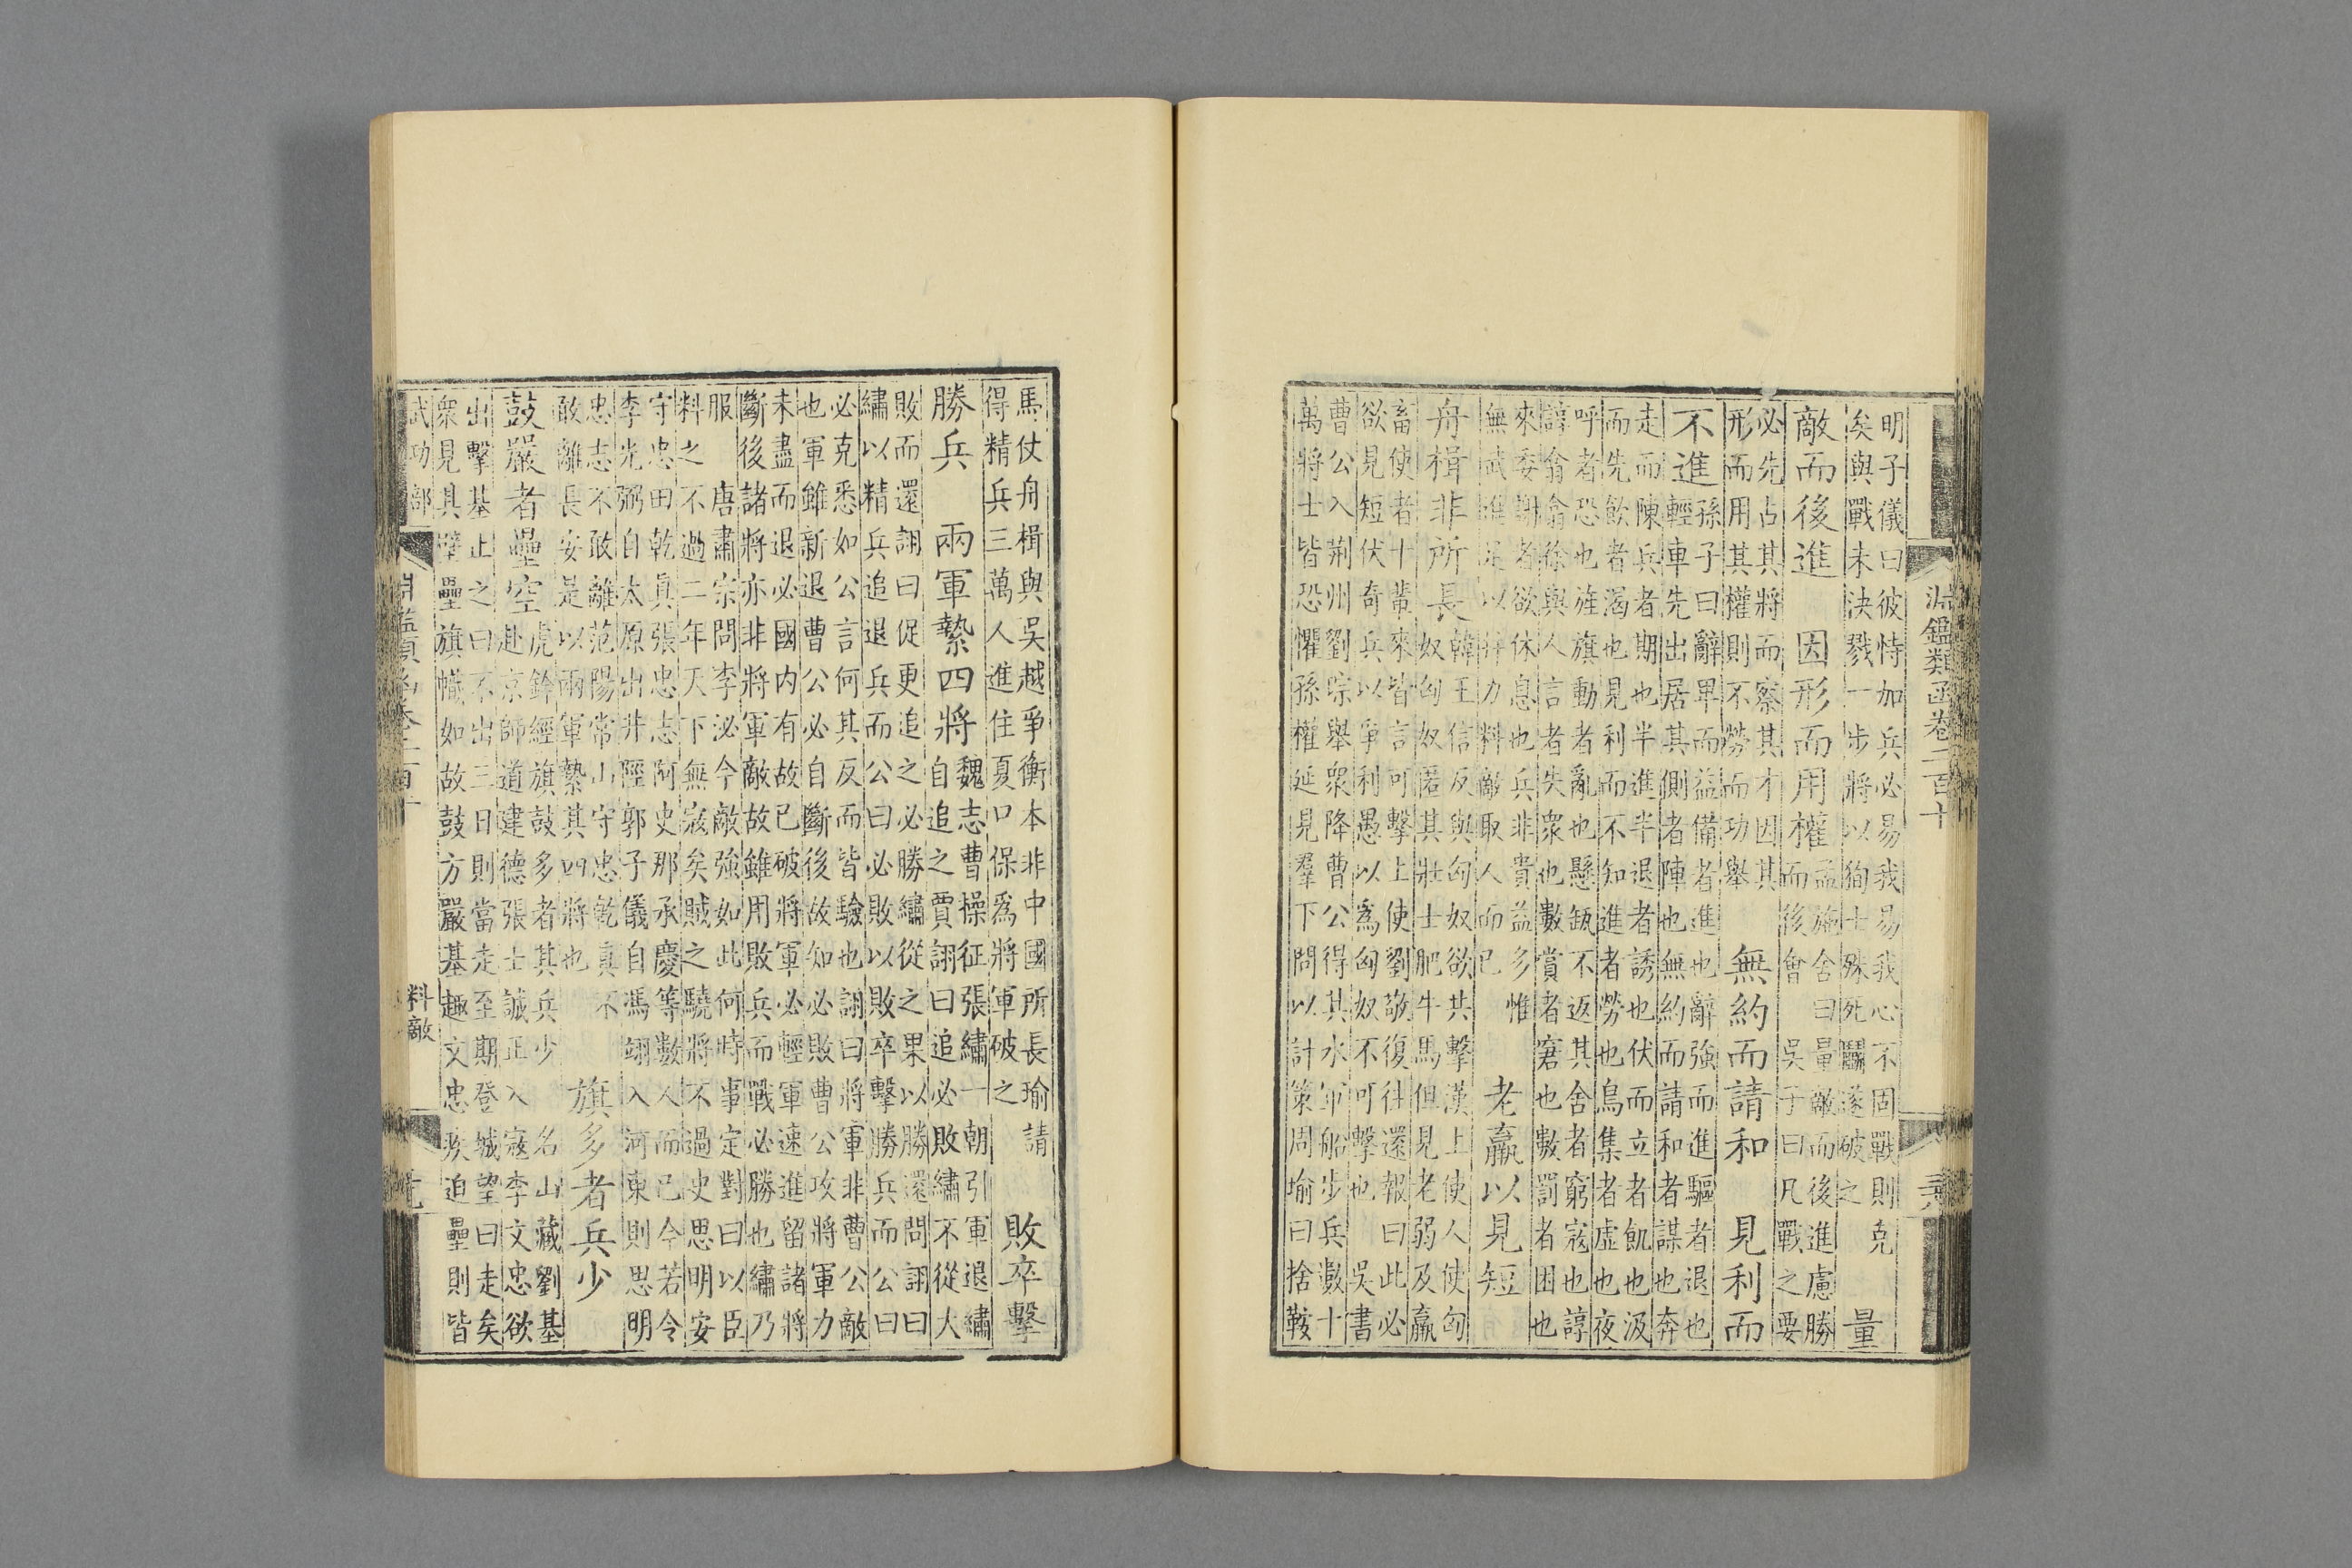 淵鑑類函卷二百十
明子儀曰彼恃加兵必易我易我心不固戰則克
矣與戰未決戮一步將以狥士殊死鬭遂破之
量
敵而後進　因形而用權
孟施舍曰量敵而後進慮勝
而後會　吳子曰凡戰之要
必先占其將而察其才因其
形而用其權則不勞而功舉
無約而請和　見利而
不進
孫子曰辭卑而益備者進也辭強而進驅者退也
輕車先出居其側者陣也無約而請和者謀也奔
走而陳兵者期也半進半退者誘也伏而立者飢也汲
而先飲者渴也見利而不知進者勞也鳥集者虛也夜
呼者恐也旌旗動者亂也懸缻不返其舍者窮寇也諄
諄翕翕徐與人言者失衆也數賞者窘也數罰者困也
來委謝者欲休息也兵非貴益多惟
無武進足以併力料敵取人而已
老羸以見短
舟楫非所長
韓王信反與匈奴欲共擊漢上使人使匈
奴匈奴匿其壯士肥牛馬但見老弱及羸
畜使者十輩來皆言可擊上使劉敬復往還報曰此必
欲見短伏奇兵以爭利愚以為匈奴不可擊也　吳書
曹公入荆州劉琮舉衆降曹公得其水軍船步兵數十
萬將士皆恐懼孫權延見羣下問以計策周瑜曰捨鞍
馬仗舟楫與吳越爭衡本非中國所長瑜請
得精兵三萬人進住夏口保為將軍破之
敗卒擊
勝兵　兩軍縶四將
魏志曹操征張繡一朝引軍退繡
自追之賈詡曰追必敗繡不從大
敗而還詡曰促更追之必勝繡從之果以勝還問詡曰
繡以精兵追退兵而公曰必敗以敗卒擊勝兵而公曰
必克悉如公言何其反而皆驗也詡曰將軍非曹公敵
也軍雖新退曹公必自斷後故知必敗曹公攻將軍力
未盡而退必國内有故已破將軍必輕軍速進留諸將
斷後諸將亦非將軍敵故雖用敗兵而戰必勝也繡乃
服　唐肅宗問李泌今敵強如此何時事定對曰以臣
料之不過二年天下無寇矣賊之驍將不過史思明安
守忠田乾真張忠志阿史那承慶等數人而已今若令
李光弼自太原出井陘郭子儀自馮翊入河東則思明
忠志不敢離范陽常山守忠乾真不
敢離長安是以兩軍縶其四將也
旗多者兵少
鼓嚴者壘空
虎鈐經旗鼓多者其兵少　名山藏劉基
赴京師道建德張士誠正入寇李文忠欲
出擊基止之曰不出三日則當走至期登城望曰走矣
衆見其壁壘旗幟如故鼓方嚴基趣文忠疾迫壘則皆
武功部　淵鑑類函卷二百十　料敵